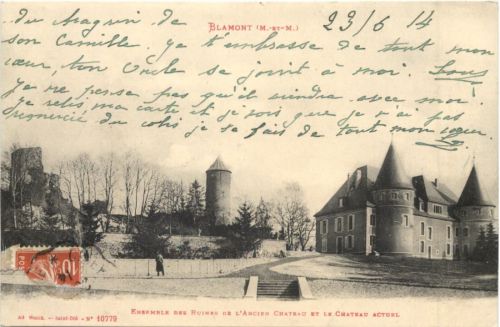 du magasin de
BLAMONT (M.-ET-M.)
23/6 14
son Camille. Je t'embrasse de tout mon
cœur, ton Oncle se joint à moi. Louis
Je ne pense pas qu'il viendra avec moi.
Je relis ma carte et je vois que je t'ai pas
du colis je le fais de tout mon cœur.
10
ENSEMBLE DES RUINES DE L'ANCIEN CHATEAU ET LE CHATEAU ACTUEL
Ad. Weick. — Saint-Dié - N° 10779